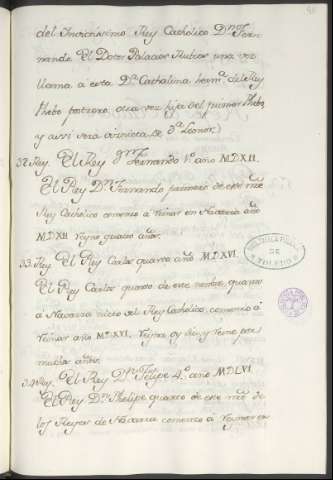 del Invictissimo Rey Catholico Dn Fer-
nando. El Dotor Palacios Rubios una vez
llama à esta Da Cathalina, hermana del Rey
Phebo postrero, otra vez hija del primer Phebo,
y assi seria viznieta de Da Leonor.)
32. Rey. El Rey Dn Fernando Vo año MDXII.
El Rey Dn Fernando primero de este nre
Rey Catholico comenzo à Reinar en Navarra año
MDXII Reyno quatro años.
33. Rey. El Rey Carlos quarto año MDXVI.
El Rey Carlos quarto de este nombre, quanto
à Navarra nieto del Rey Catholico, comenzo à
Reinar año MDXVI. Reyna oy dia, y Reine por
muchos años.
34. Rey. El Rey Dn Felipe 4o año MDLVI.
El Rey Dn Phelipe quarto de este nre de
los Reyes de Navarra comenzo à Reynar en
DE
TOLEDO